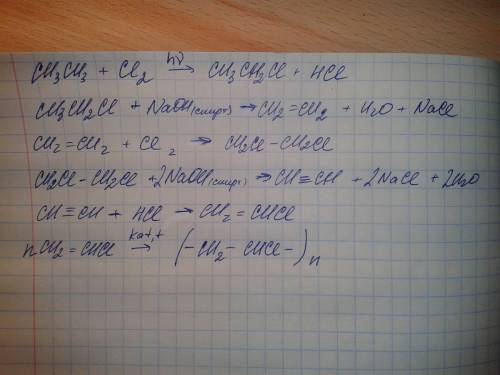 CH3CH3 + Cl2 hν→ CH3CH2Cl + HCl
CH3CH2Cl + NaOH(спирт) → CH2=CH2 + H2O + NaCl
CH2=CH2 + Cl2 → CH2Cl-CH2Cl
CH2Cl-CH2Cl + 2NaOH(спирт) → CH≡CH + 2NaCl + 2H2O
CH≡CH + HCl → CH2=CHCl
nCH2=CHCl kat,t→ (-CH2-CHCl-)n